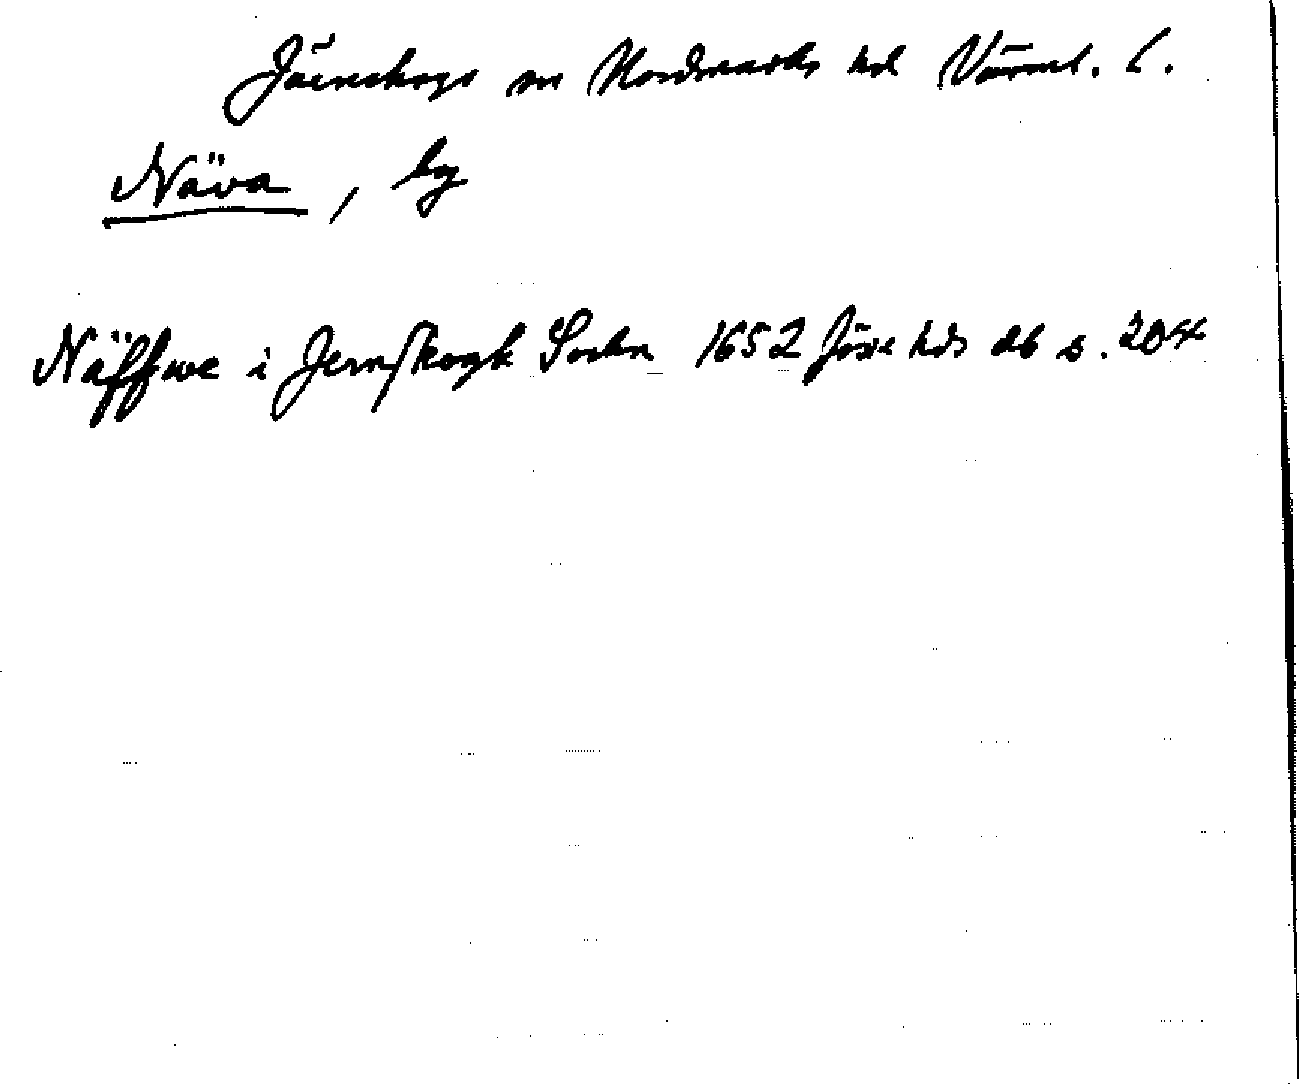 Järnskogs sn Nordmarks hd Värml. l.
Näva, by
Näffwe i Jernskogh Sochn 1652 Jöse hds db s. 204